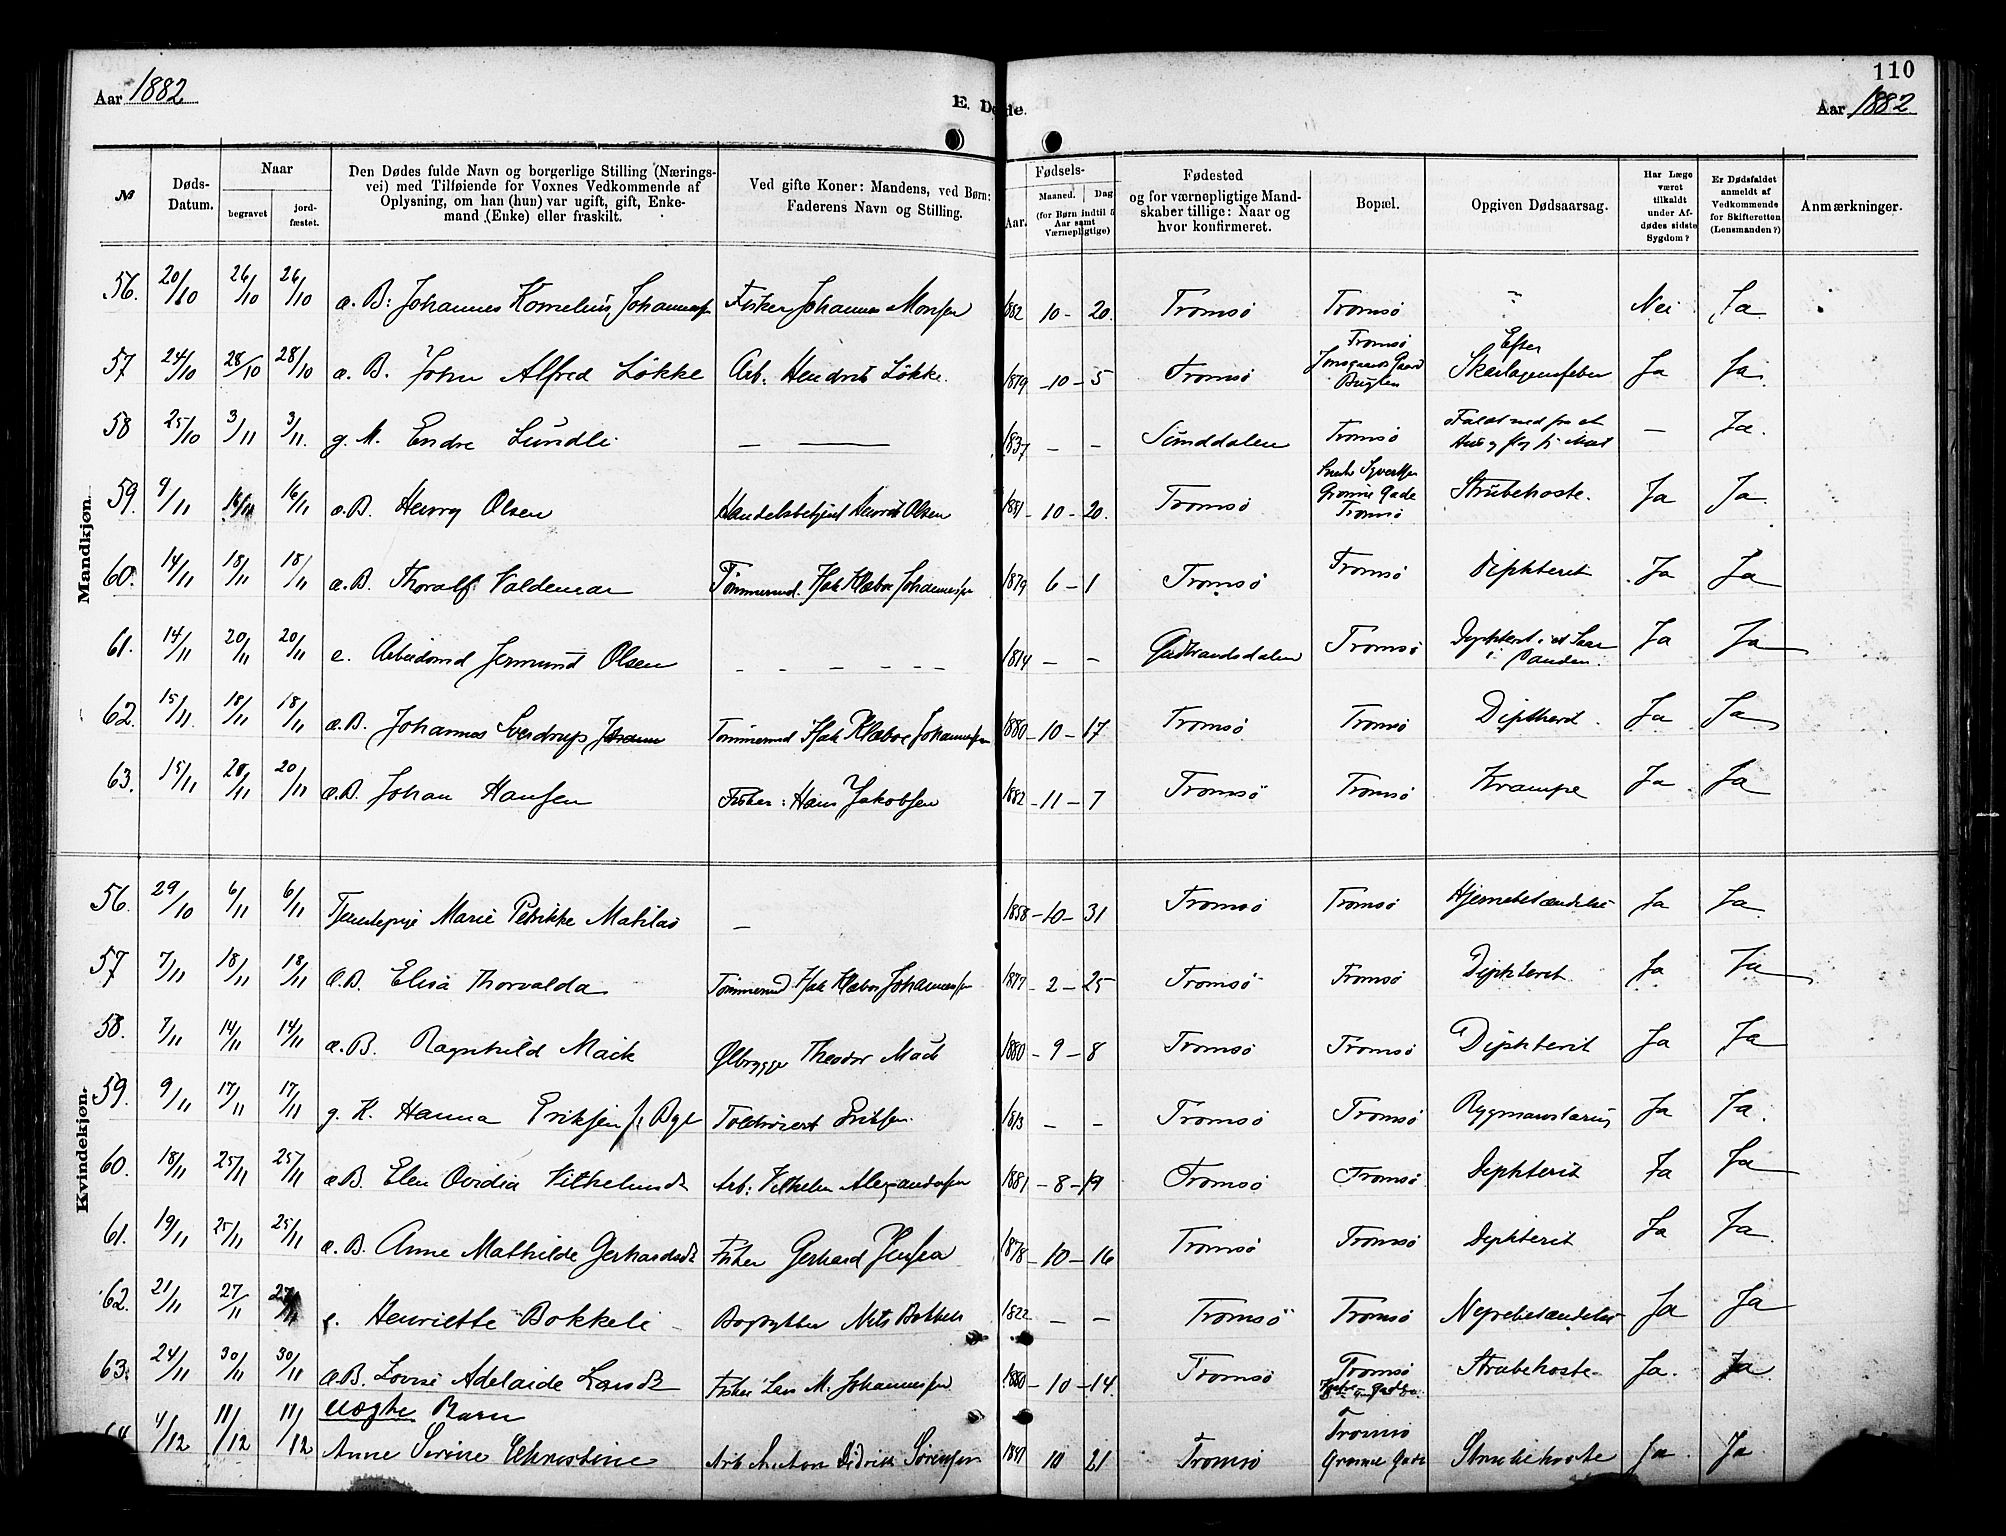 110
Aar 1882
E. Døde.
Aar 1882
№
Døds-Datum.
Naar
begravet
jord-fæstet.
Den Dødes fulde Navn og borgerlige Stilling (Nærings-
vei) med Tilføiende for Voxnes Vedkommende af
Oplysning, om han (hun) var ugift, gift, Enke-
mand (Enke) eller fraskilt.
Ved gifte Koner: Mandens, ved Børn:
Faderens Navn og Stilling.
Fødsels-
Aar.
Maaned.
Dag
(for Børn indtil 5
Aar samt
Værnepligtige)
Fødested
og for værnepligtige Mand-
skaber tillige: Naar og
hvor konfirmeret.
Bopæl.
Opgiven Dødsaarsag.
Har Læge
været
tilkaldt
under Af-
dødes sidste
Sygdom?
Er Dødsfaldet
anmeldt af
Vedkommende
for Skifteretten
(Lensmanden?)
Anmærkninger.
Mandkjøn.
56. 20/10 26/10 26/10 æ. B: Johannes Kornelius Johannessen Fisker Johannes Monsen 1882 10 - 20. Tromsø Tromsø " Nei Ja
57 24/10 28/10 28/10 æ. B. John Alfred Løkke Arb. Hendrik Løkke. 1879 - 10 - 5 Tromsø Tromsø Gaard Efter Skarlagensfeber Ja Ja
58 25/10 3/11 3/11. g. M. Endre Lundli — — 1837 - - Sunddalen Tromsø Faldt ned fra et — Ja.
59. 9/11 16/11 16/11 æ. B. Henry Olsen Handelsbetjent Henrik Olsen 1881 - 10 - 20. Tromsø Grønne Gade Tromsø Strubehoste. Ja Ja
60. 14/11 18/11 18/11 æ. B. Thoralf Valdemar Tømmermd. Isak Klæboe Johannessen 1879 6 - 1 Tromsø Tromsø Diphterit Ja Ja
61. 14/11 20/11 20/11 e. Arbeidsmd Jermund Olsen - - - - - - 1814 - - Gudbrandsdalen Tromsø Diphterit i et Saar i Panden. Ja Ja
62. 15/11. 18/11 18/11 æ. B. Johannes Sverdrup Tømmermd Isak Klæboe Johannessen 1880 - 10 - 17 Tromsø Tromsø Diphterit. Ja Ja
63. 15/11 20/11 20/11 æ. B. Johan Hansen Fisker: Hans Jakobsen 1882 - 11 - 7 Tromsø Tromsø Krampe Ja Ja
Kvindekjøn.
56. 29/10 6/11 6/11 Tjenestepige Marie Petrikke Matilas — 1858 - 10 - 31 Tromsø Tromsø Hjernebetændelse Ja Ja
57 7/11 18/11 18/11 æ. B. Elisa Thorvalda Tømmermd Isak Klæboe Johannessen 1877 - 2 - 25 Tromsø Tromsø Diphterit Ja Ja
58. 7/11 14/11 14/11 æ. B. Ragnhild Mack Ølbrygger Theodor Mack 1880 - 9 - 8 Tromsø Tromsø Diphterit Ja Ja
59. 9/11 17/11 17/11 g. K. Hanna Eriksen Toldvisert Eriksen. 1813 - - Tromsø Tromsø Rygmarvstæring Ja Ja.
60. 18/11 25/11 25/11 æ. B. Elen Ovidia Vilhelmsdt Arb: Vilhelm Alexandersen 1881 - 8 - 19 Tromsø Tromsø Diphterit Ja Ja
61. 19/11 25/11 25/11 æ. B. Anne Mathilde Gerhardsdt Fisker Gerhard Jensen 1878 - 10 - 16 Tromsø Tromsø Diphterit Ja Ja.
62. 21/11 27/11 27/11 e. Henriette Bokkeli - Bogrykker Nils Bokkeli 1822 - - Tromsø Tromsø Nyrebetændelse Ja Ja
63. 24/11 30/11 30/11 æ. B. Lovise Adelaide Larsdt Fisker Lars M. Johannessen 1880 - 10 - 14. Tromsø Tromsø Strubehoste Ja. Ja
uægte Barn
64 4/12 11/12 11/12 Anne Serine Christine Arb Anton Didrik Sørensen 1881 10 21 Tromsø Tromsø Grønne Gade Strubehoste Ja Ja